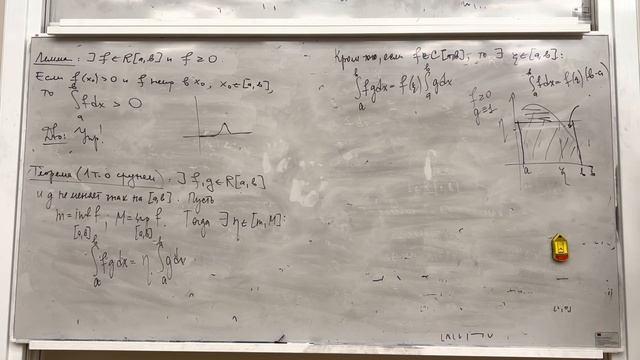 Лемма: ∃ f ∈ R[a,b] и f ≥ 0.
Если f(x₀) > 0 и f непр в x₀, x₀ ∈ [a,b],
то ∫ₐᵇ f dx > 0
Д-во: Упр!
Теорема (1 т. о среднем): ∃ f, g ∈ R[a,b]
и g не меняет знак на [a,b]. Пусть
m = inf f, M = sup f. Тогда ∃ η ∈ [m, M]:
[a,b] [a,b]
∫ₐᵇ f g dx = η ∫ₐᵇ g dx
Кроме того, если f ∈ C[a,b], то ∃ ξ ∈ [a,b]:
∫ₐᵇ f g dx = f(ξ) ∫ₐᵇ g dx
∫ₐᵇ f dx = f(ξ)(b-a)
f ≥ 0
g ≡ 1
η
a
b